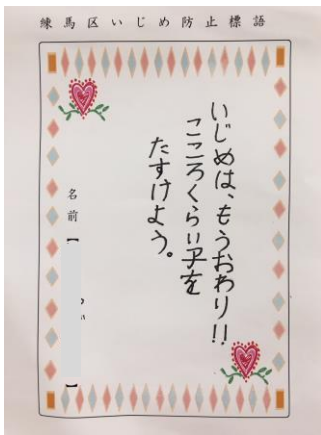 練馬区いじめ防止標語
いじめは、もうおわり!!
こころくらい子を
たすけよう。
名前【 】